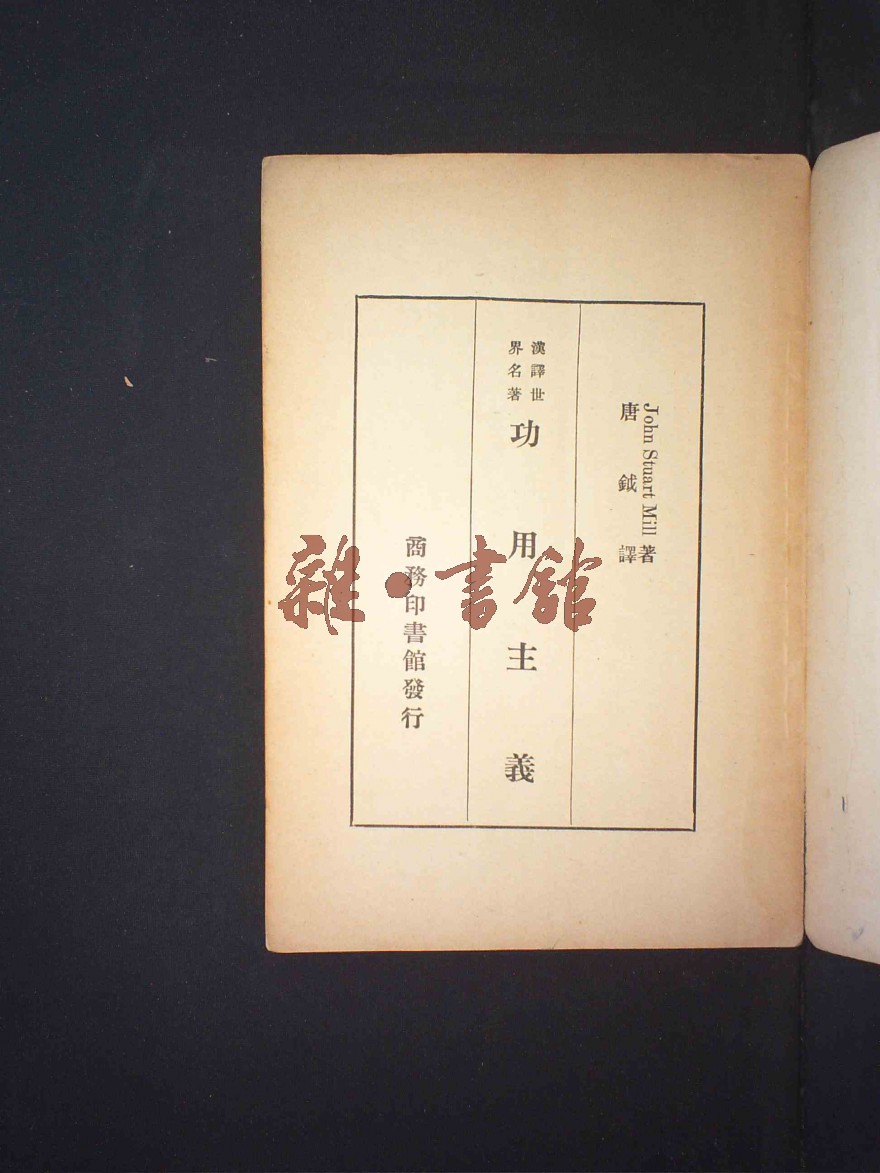 John Stuart Mill 著
唐鉞譯
漢譯世
界名著
功用主義
商務印書館發行
雜·書館